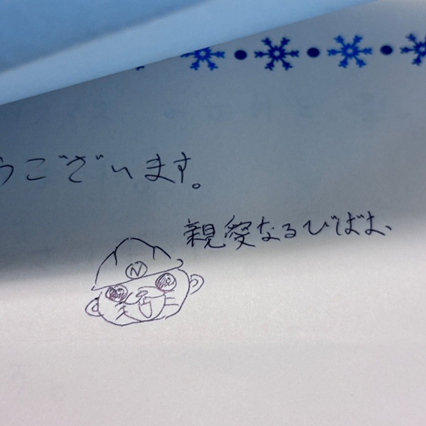 うございます。
親愛なるびばよ、
N